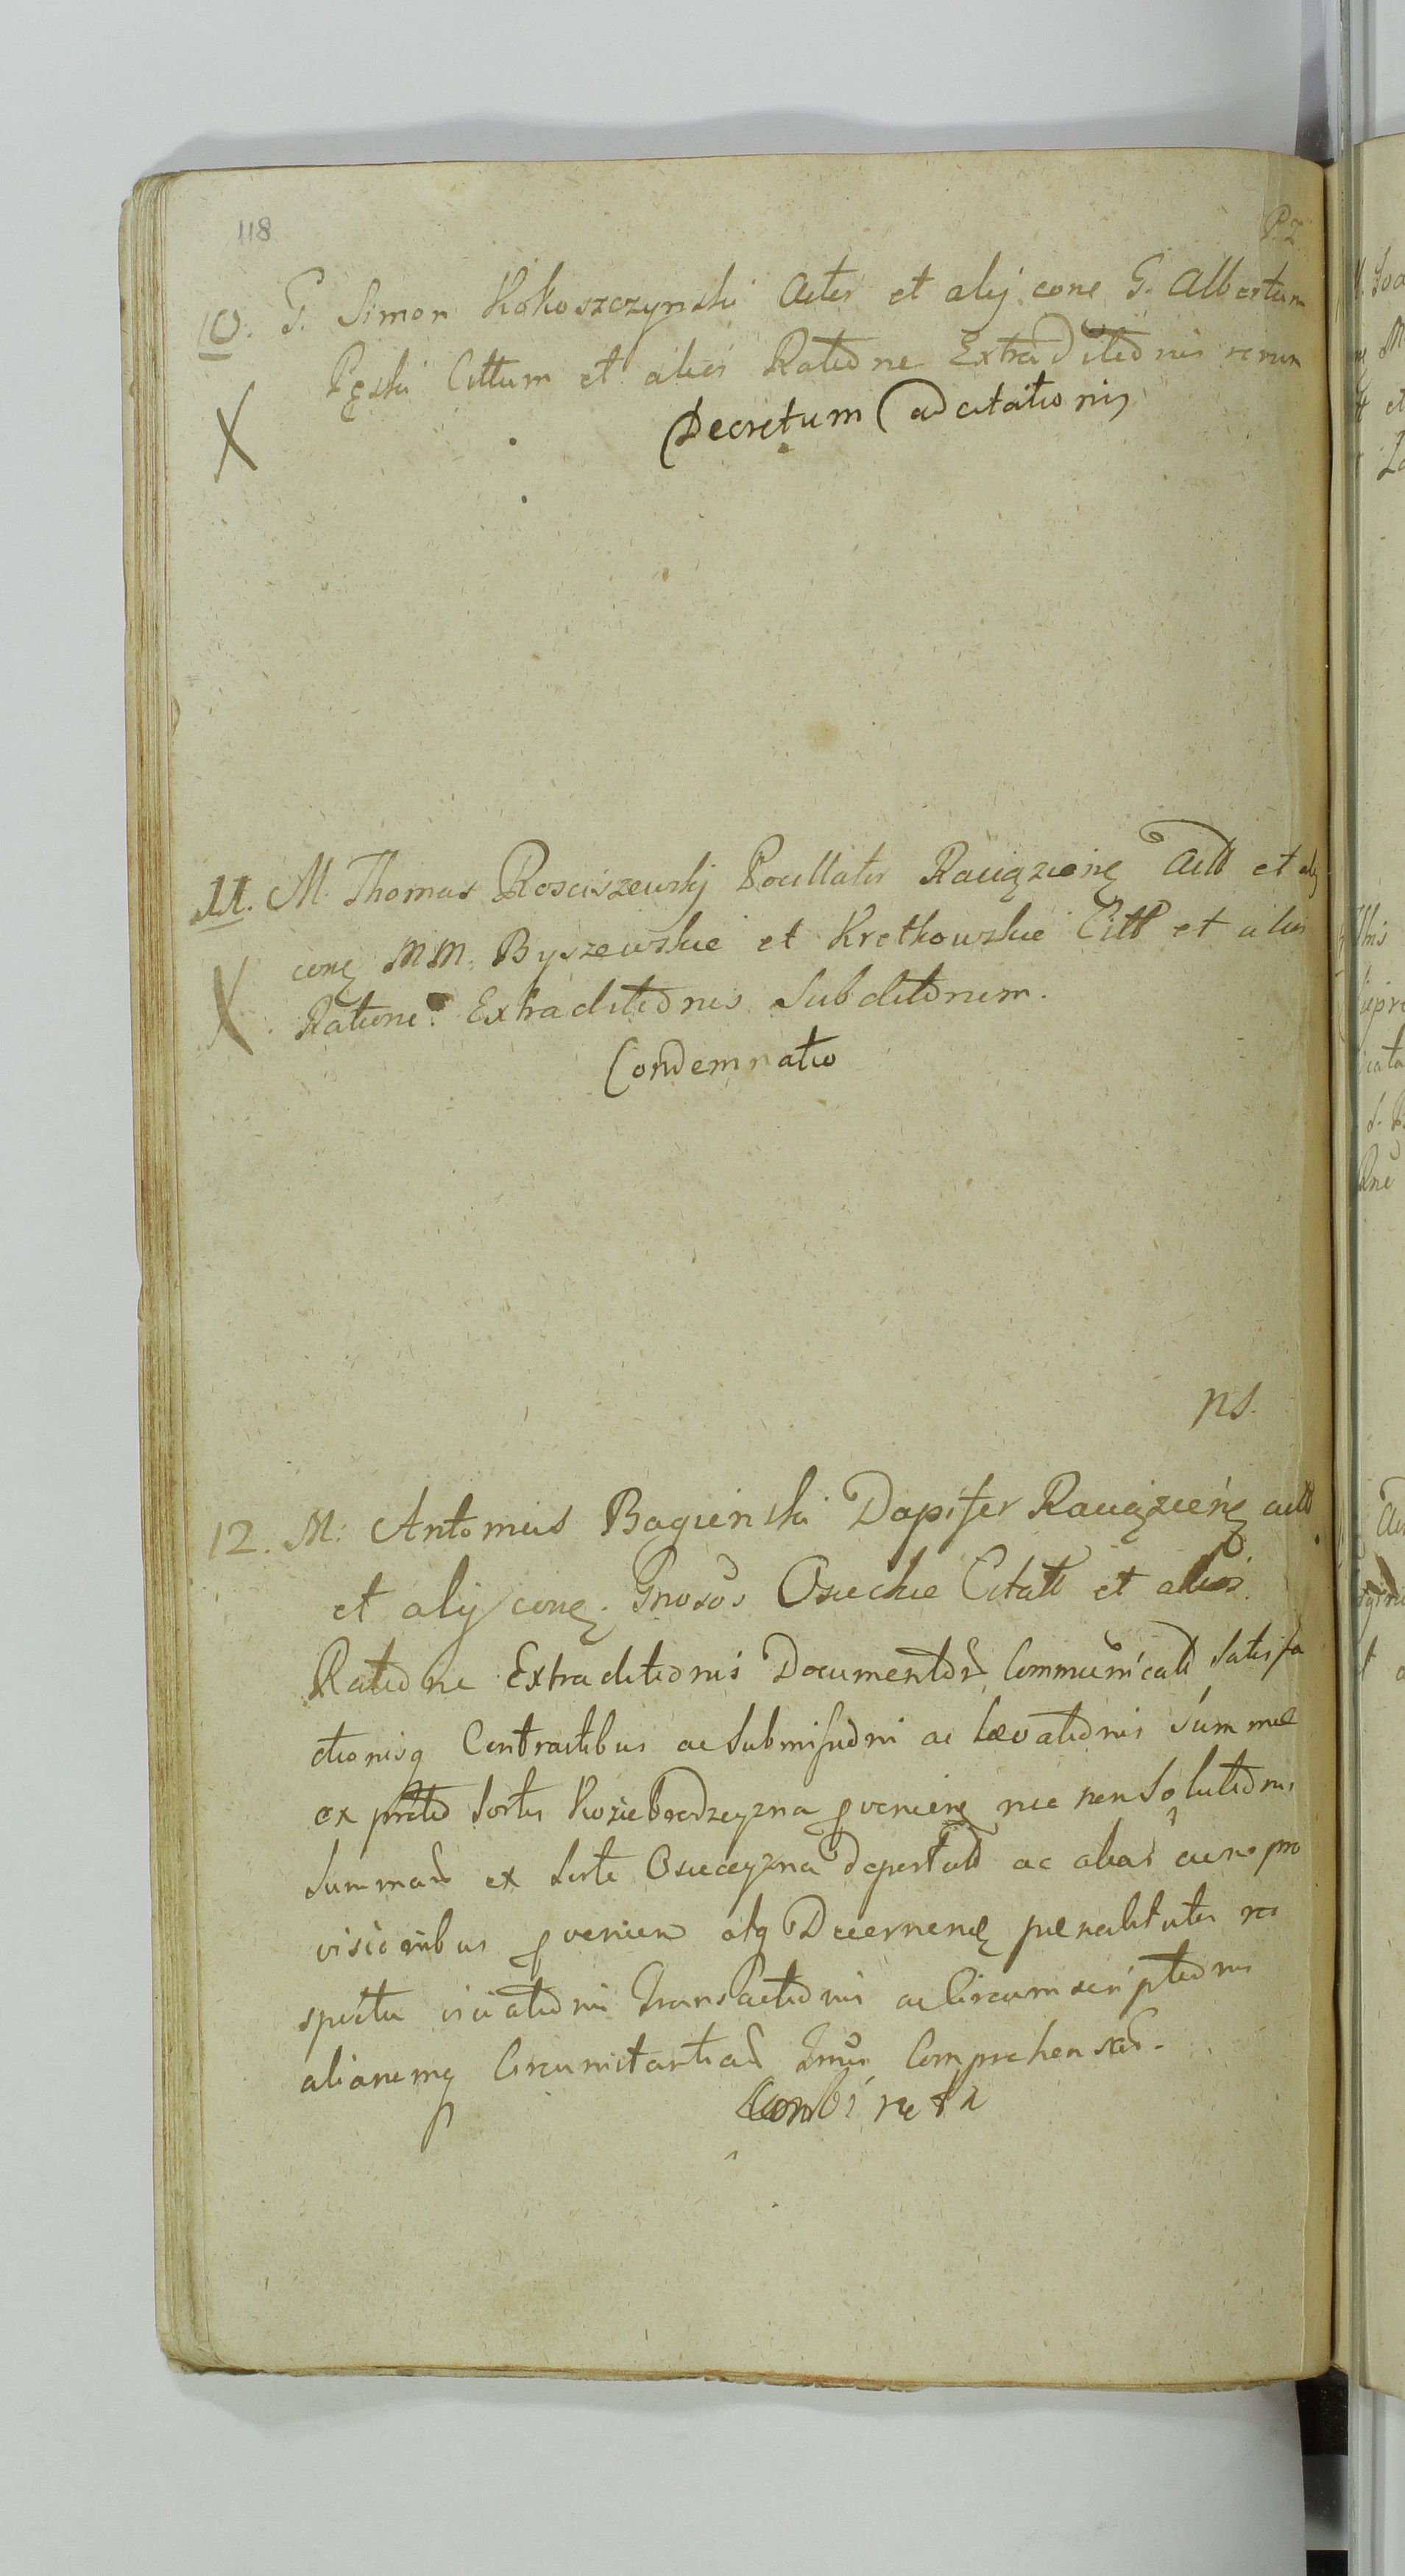 118
P.Z
10. G. Simon Kokoszczynski Acter et alij conę G. Albertum
Pęski Cittum et alios Ratione Extraditionis rerum
X
Decretum Adcitationis
11. M. Thomas Rosciszewskj Pocillator Raciązienę Actt et alij
conę MM. Byszewskie et Kretkowskie Citt et alios
X Ratione Extraditionis Subditorum.
Condemnatio
ns.
12. M. Antonius Bagienski Dapifer Raciązienę actt
et alij conę. Gnosos Osieckie Citatt et alios
Ratione Extraditionis Documentor Communicati Satisfa
ctionisq Contractibus ac Submissioni ac Levationis Summae
ex sortis Koziebrodzczyzna provenienę nec non Solutionis
Summar ex Sorte Osieczyzna ac alias pro
visionibus provenien atq Decernenę paenalitates re
spectu violationis Transactionis ac Circumscriptionis
aliarumq Circumstantiar Comprehensar.
Combineta